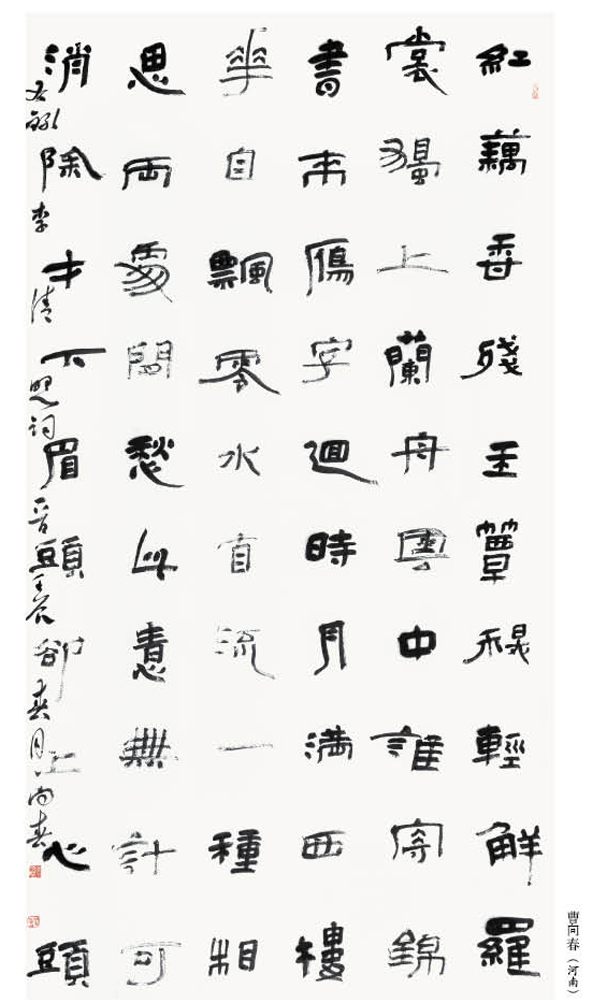 紅藕香殘玉簟秋輕解羅
裳獨上蘭舟雲中誰寄錦
書來鴈字迴時月滿西樓
華自飄零水自流一種相
思兩處閒愁此情無計可
消除才下眉頭卻上心頭
右錄李清照詞壬辰春月向春
曹向春（河南）